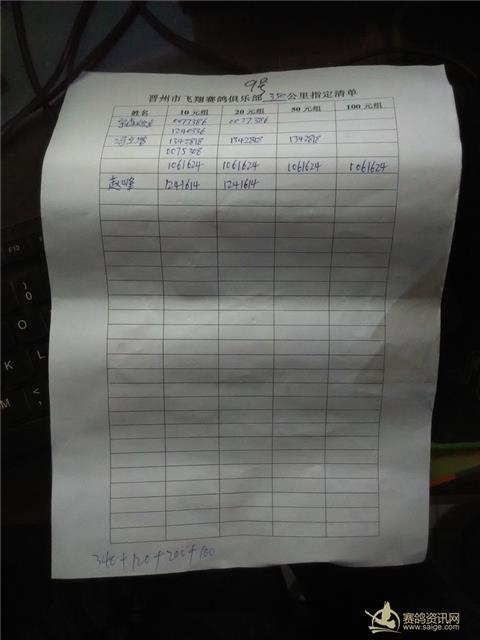 9号
晋州市飞翔赛鸽俱乐部350公里指定清单
姓名 10元组 20元组 50元组 100元组
0077386 0077386
1240336
1342818 1342818 1342818
0075308
1061624 1061624 1061624 1061624
赵峰 1241614 1241614
340+120+200+100
赛鸽资讯网
www.saige.com